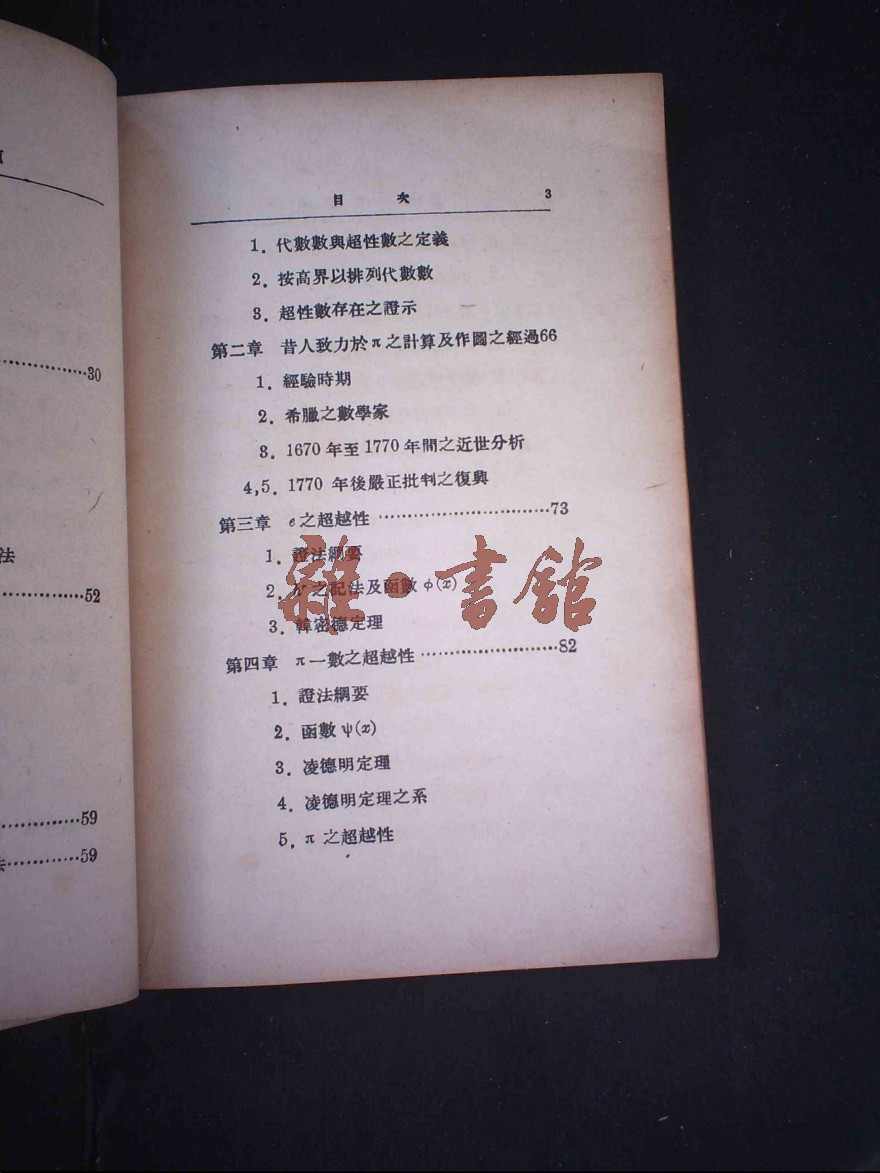 30
法
52
59
59
目 次 3
1. 代數數與超性數之定義
2. 按高界以排列代數數
3. 超性數存在之證示
第二章 昔人致力於π之計算及作圖之經過66
1. 經驗時期
2. 希臘之數學家
3. 1670年至1770年間之近世分析
4,5. 1770 年後嚴正批判之復興
第三章 e之超越性 ······························73
1. 證法綱要
2. 之記法及函數 φ(x)
3. 韓密德定理
第四章 π一數之超越性 ························82
1. 證法綱要
2. 函數 ψ(x)
3. 凌德明定理
4. 凌德明定理之系
5. π 之超越性
雜·書館